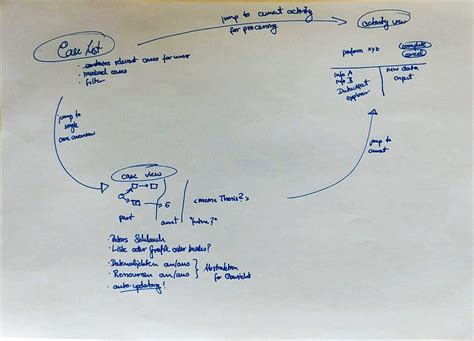 Case List
- contains relevant cases for user
- involved cases
- filter
jump to current activity
for processing
activity view
perform xyz
complete
cancel
Info A
Info B
new data
input
jump to
single
case overview
jump to
current
case view
past
"future?"
<meine Thesis?>
- Peters
- Liste oder Grafik oder beides?
- Datenobjekten an/aus
- Ressourcen an/aus
Abstraktion
for
- auto-updating!